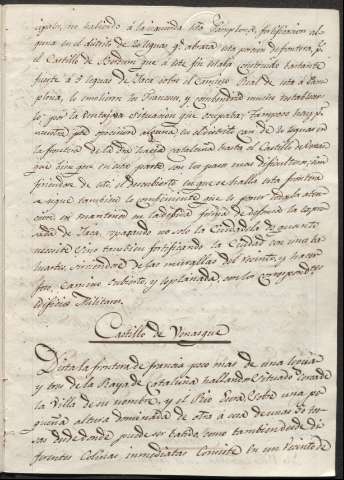 cipal, no habiendo á la izquierda hta Pamplona, fortificacion al-
guna en el distrito de 20 leguas qe abraza esta porcion de frontera, pr
el Castillo de Berdun que á este fin estaba construido bastante
fuerte á 5 leguas de Jaca sobre el camino Real de esta á Pam-
plona, lo demolieron los Franceses, y combendria mucho restablecer-
lo, por la ventajosa situacion que ocupaba; tampoco hay pr
nuestra parte oposicion alguna en el distrito casi de 20 leguas en
la frontera de la dra hacia cataluña hasta el Castillo de Venas-
que bien que en esta parte, son los pasos mas dificultosos, com
prendese de esto, el descubierto en que se halla esta frontera
y sigue tambien lo combeniente que es poner toda la aten-
cion en mantener en la debida forma de defensa la espre-
sada de Jaca, reparando no solo la Ciudadela de quanto
necesite sino tambien fortificando la Ciudad con cinco ba-
luartes, sirviendose de las murallas del recinto, y hacer
foso, camino cubierto, y esplanada, con los correspondtes
edificios Militares.
Castillo de Venasque
Dista la frontera de francia poco mas de una legua
y tres de la Raya de Cataluña hallandose situado cerca de
la Villa de su nombre, y el Rio Esera sobre una pe-
queña altura dominada de otra á cosa de unas 30 toe-
sas desde donde puede ser batido, como tambien desde di-
ferentes Colinas inmediatas. Consiste en un Recinto de